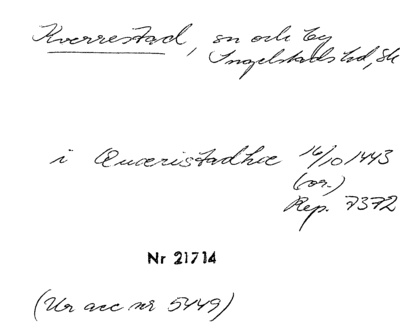 Kverrestad, sn och by
Ingelstads hd, Sk
i Quæristadhæ 16/10 1443
(or.)
Rep. 7372
Nr 21714
(Ur acc nr 5449)